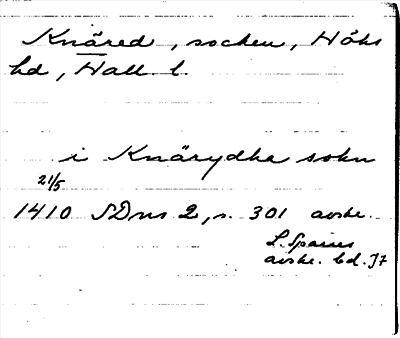 Knäred, socken, Höks
hd, Hall. l.
i Knärydha sokn
21/5
1410 SDns 2, s. 301 avskr.
L. Sparres
avskr. bd. 17